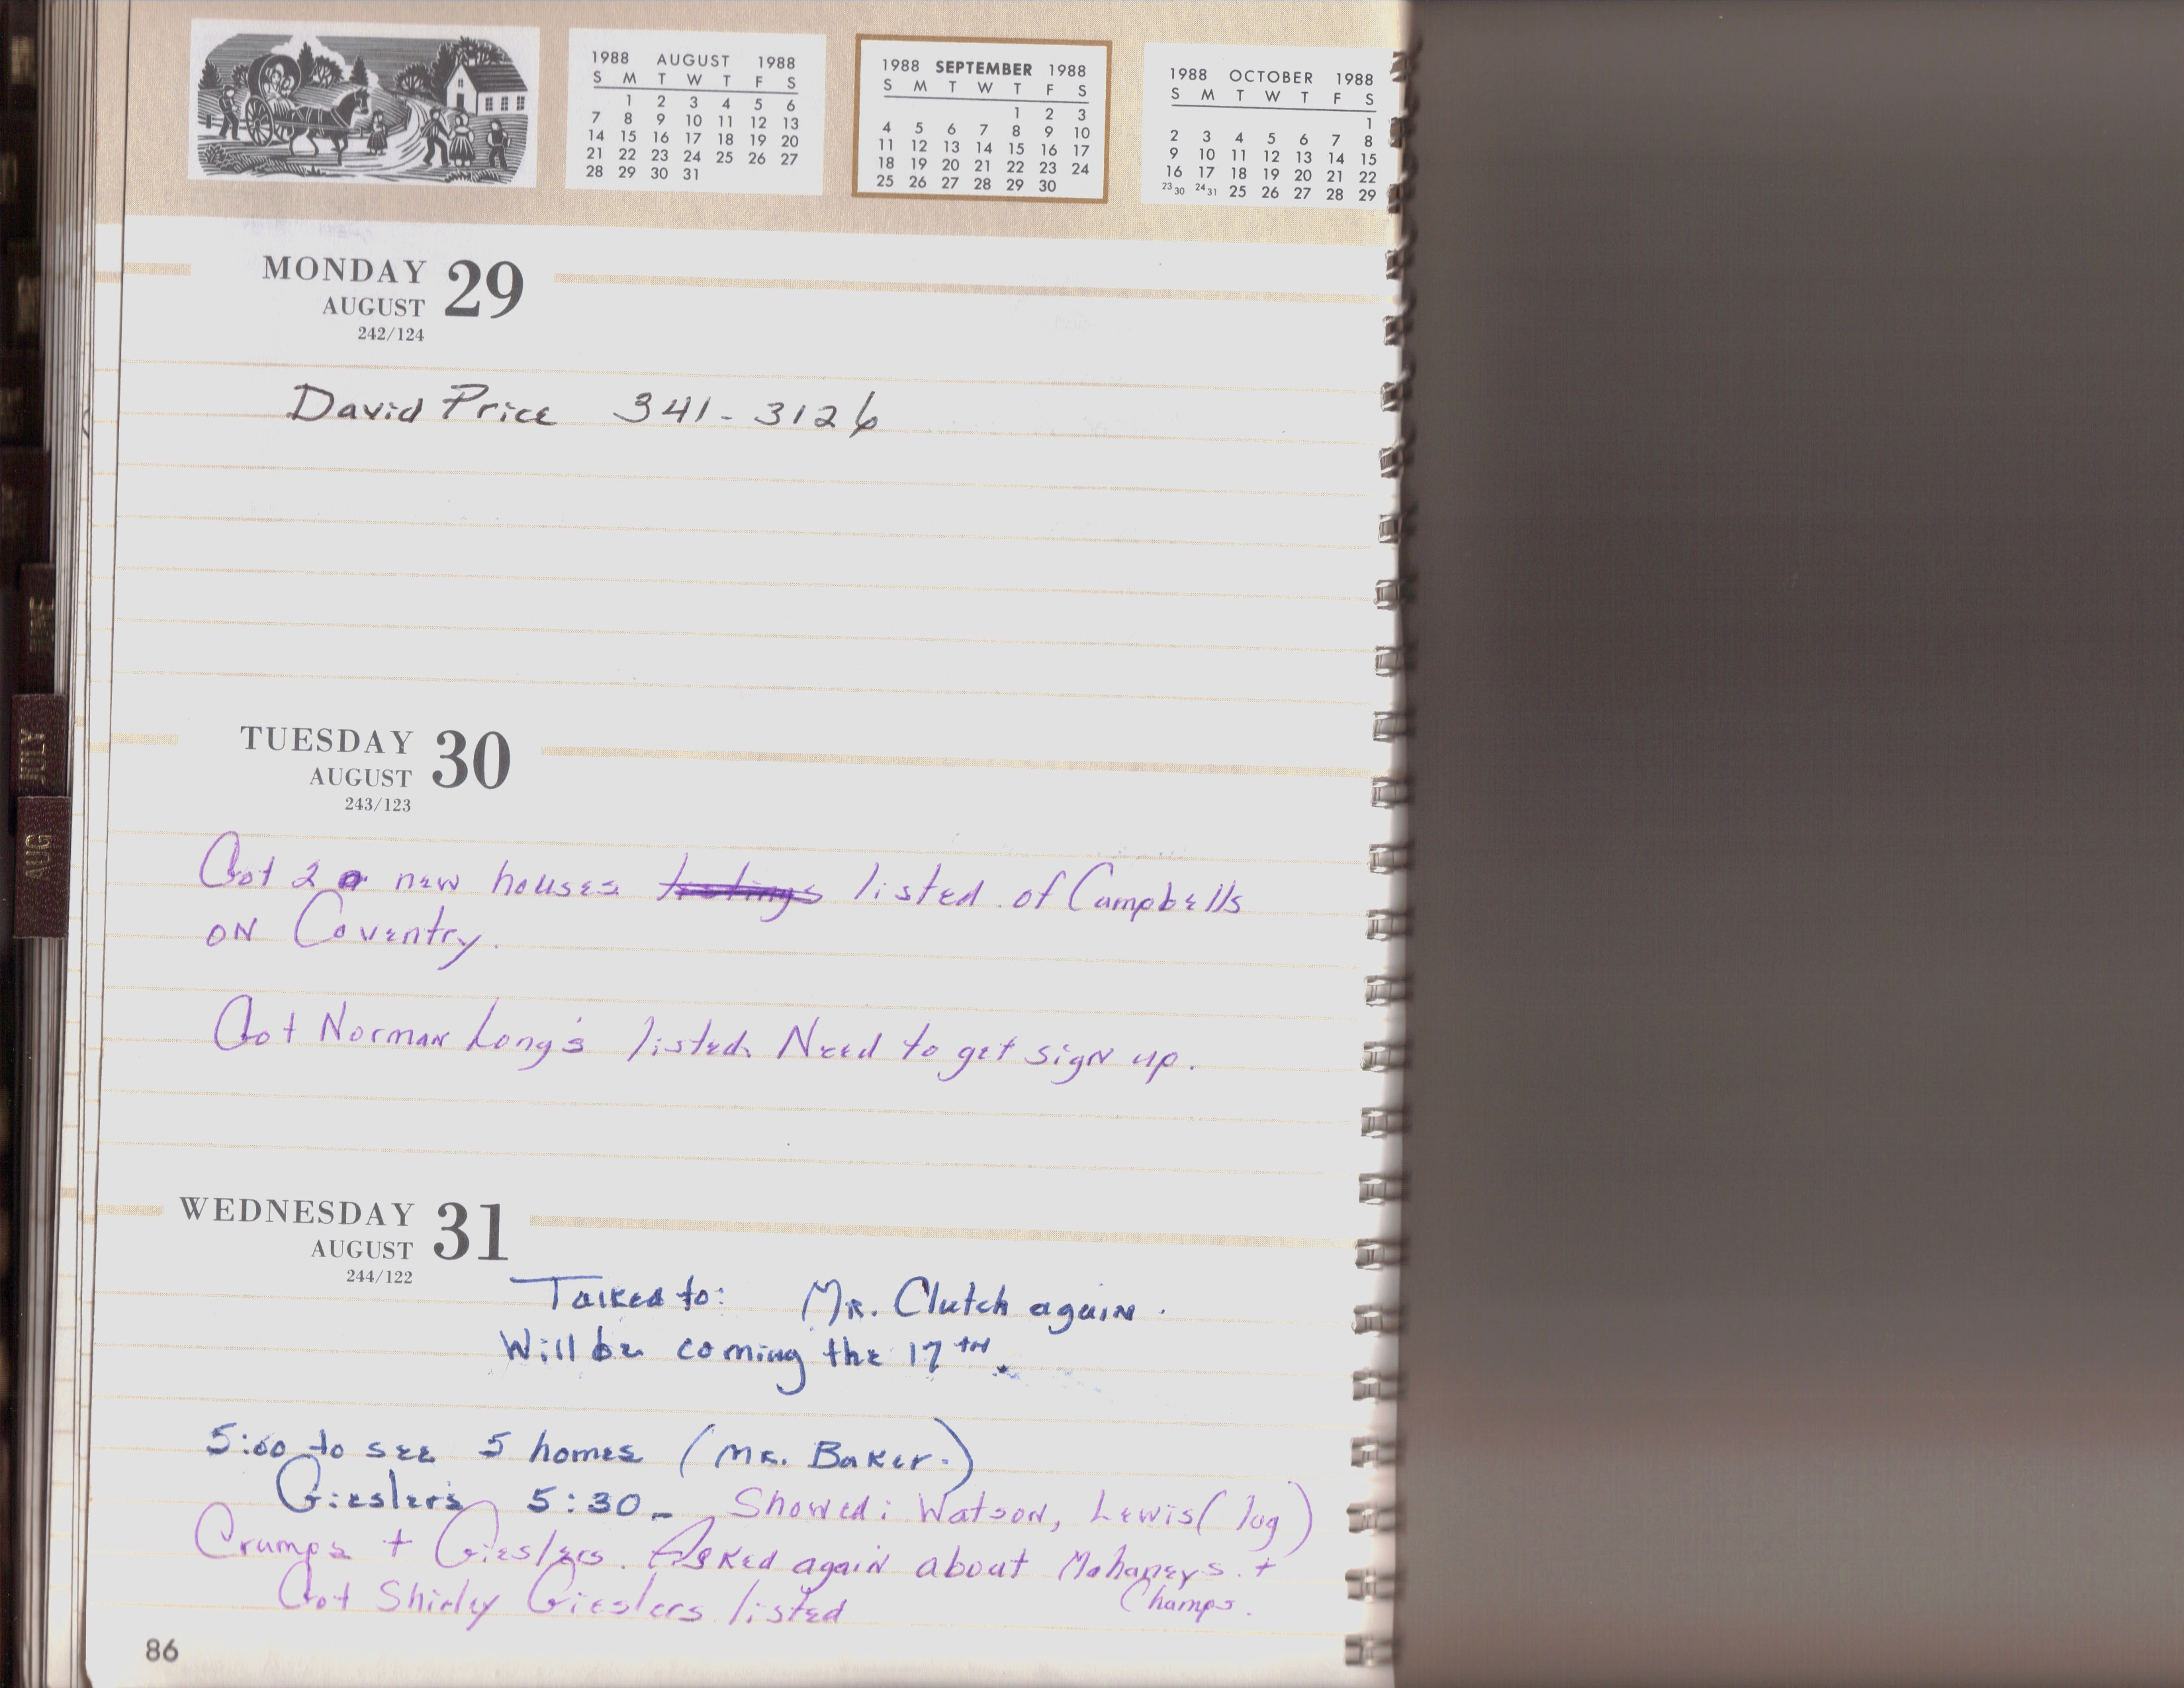 1988 AUGUST 1988
S M T W T F S
1 2 3 4 5 6
7 8 9 10 11 12 13
14 15 16 17 18 19 20
21 22 23 24 25 26 27
28 29 30 31
1988 SEPTEMBER 1988
S M T W T F S
1 2 3
4 5 6 7 8 9 10
11 12 13 14 15 16 17
18 19 20 21 22 23 24
25 26 27 28 29 30
1988 OCTOBER 1988
S M T W T F S
1
2 3 4 5 6 7 8
9 10 11 12 13 14 15
16 17 18 19 20 21 22
23 30 24 31 25 26 27 28 29
MONDAY 29
AUGUST
242/124
David Price 341-3126
JUNE
JULY
AUG
TUESDAY 30
AUGUST
243/123
Got 2 new houses listed of Campbells
on Coventry.
Got Norman Long's listed. Need to get sign up.
WEDNESDAY 31
AUGUST
244/122
Talked to: Mr. Clutch again.
Will be coming the 17th.
5:00 to see 5 homes (Mr. Baker.)
Gieslers 5:30 - Showed: Watson, Lewis (log)
Crumps + Gieslers. Asked again about Mahaneys. +
Champs.
Got Shirley Gieslers listed
86